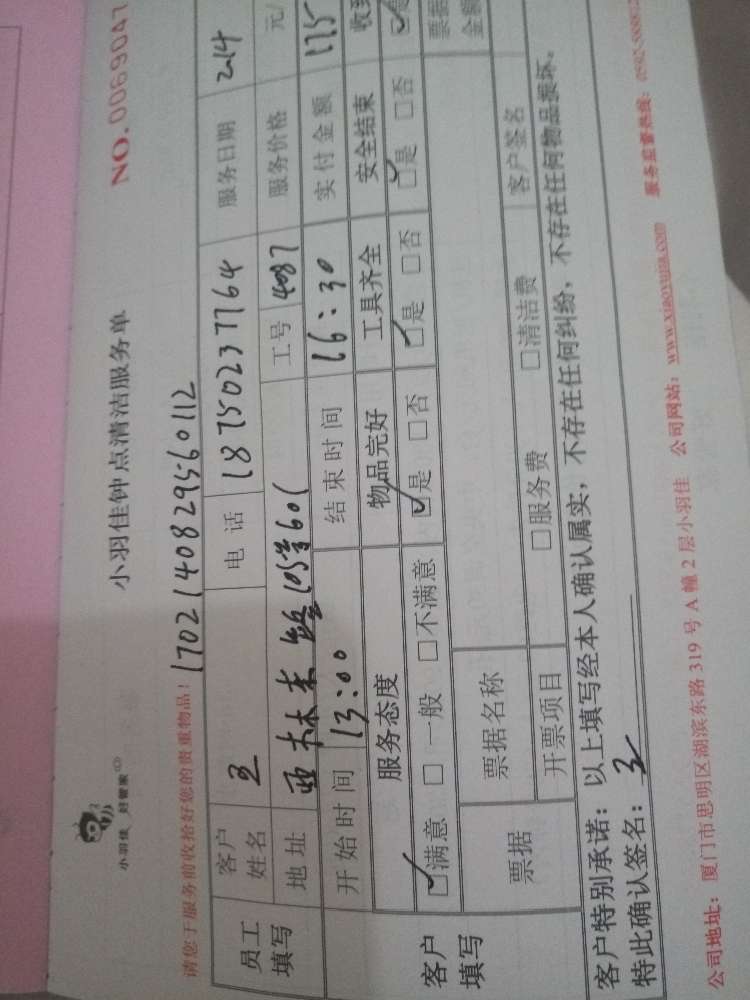 小羽佳 好管家
小羽佳钟点清洁服务单
NO.0069047
请您于服务前收拾好您的贵重物品！
1702140829560112
员工填写
客户姓名 王 电话 18750237764 服务日期 2.14
地址 亚林来 105号601 工号 4087 服务价格 元/
开始时间 13:00 结束时间 16:30 实付金额 175
客户填写
服务态度 物品完好 工具齐全 安全结束 收到
☑满意 □一般 □不满意 ☑是 □否 ☑是 □否 ☑是 □否 ☑是
票据 票据名称 票据金额
开票项目 □服务费 □清洁费 客户签名
客户特别承诺：以上填写经本人确认属实，不存在任何纠纷，不存在任何物品损坏。
特此确认签名：王
公司地址：厦门市思明区湖滨东路319号A幢2层小羽佳 公司网站：www.xiaoyujia.com 服务监督热线：0592-